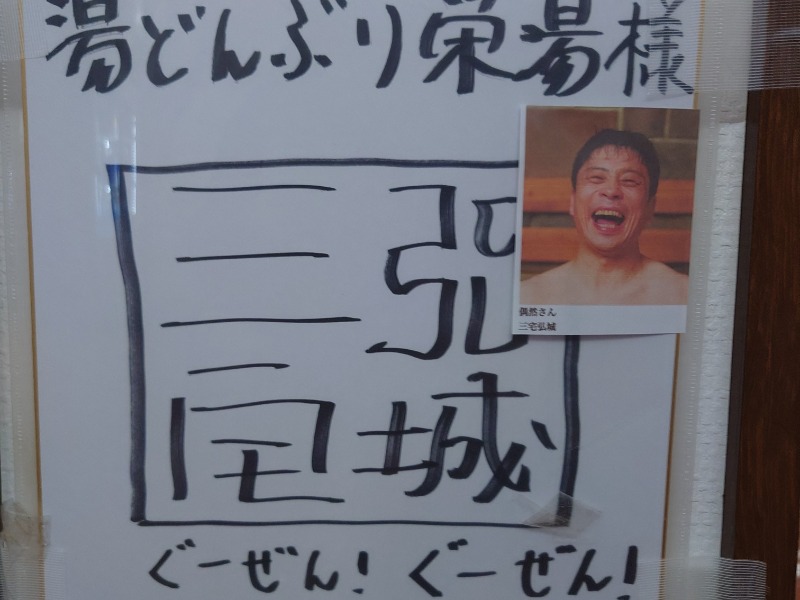 湯どんぶり栄湯様
三宅
弘城
偶然さん
三宅弘城
ぐーぜん！ぐーぜん！